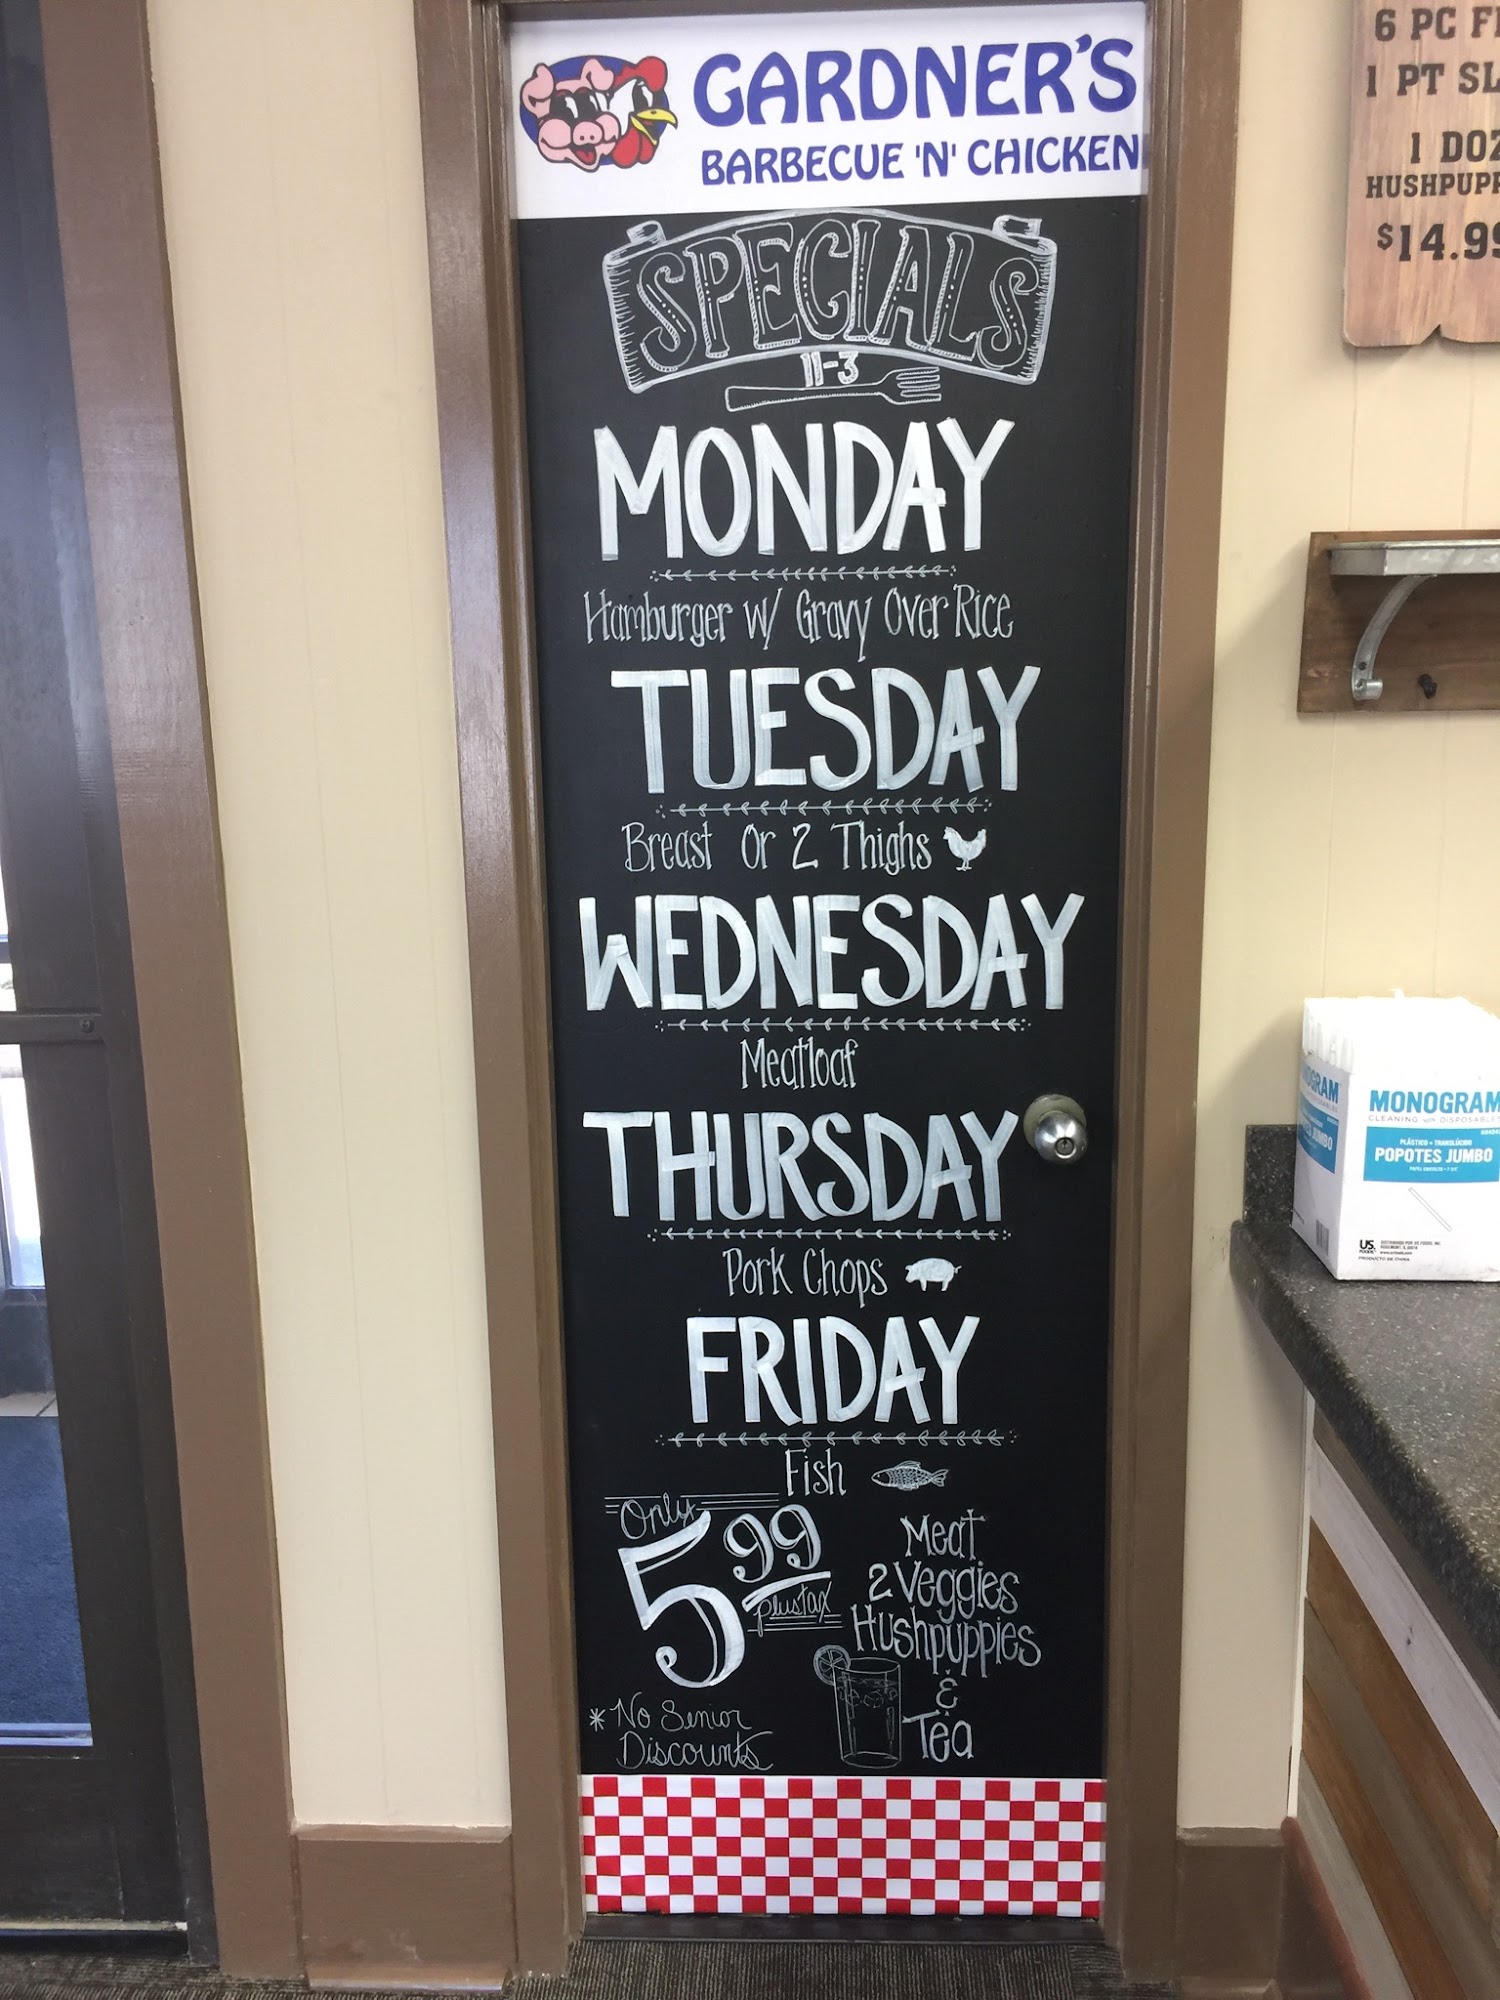 GARDNER'S
BARBECUE 'N' CHICKEN
SPECIALS
11-3
MONDAY
Hamburger w/ Gravy Over Rice
TUESDAY
Breast Or 2 Thighs
WEDNESDAY
Meatloaf
THURSDAY
Pork Chops
FRIDAY
Fish
Only
5 99
plus tax
Meat
2 Veggies
Hushpuppies
&
Tea
* No Senior
Discounts
6 PC F
1 PT SL
1 DOZ
HUSHPUPP
$14.99
MONOGRAM
CLEANING and DISPOSABLES
PLÁSTICO • TRANSLÚCIDO
POPOTES JUMBO
US.
FOODS
PRODUCTO DE CHINA
OGRAM
JUMBO